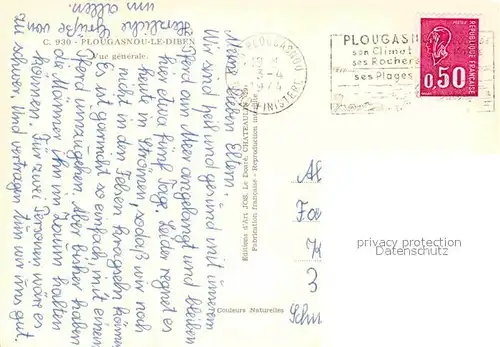 C. 930 - PLOUGASNOU-LE-DIBEN
Vue générale.
Meine lieben Eltern!
Wir sind heil und gesund mit unserem
Pferd am Meer angelangt und bleiben
hier etwa fünf Tage. Leider regnet es
heute in Strömen, sodaß wir noch
nicht in den Felsen kraxeln können
Es ist garnicht so einfach, mit einem
Pferd umzugehen. Aber bisher haben
die Männer ihn im Zaum halten
können. Für zwei Personen wär es
zu schwer. Und vertragen tun wir uns gut.
Herzliche Grüße von
uns allen.
Editions d'Art JOS. Le Doaré, CHATEAULIN
Fabrication française - Reproduction interdite
Couleurs Naturelles
PLOUGASNOU
FINISTERE
PLOUGASNOU
son Climat
ses Rochers
ses Plages
REPUBLIQUE FRANCAISE
POSTES
0,50
Al
Fa
3
Schw
privacy protection
Datenschutz